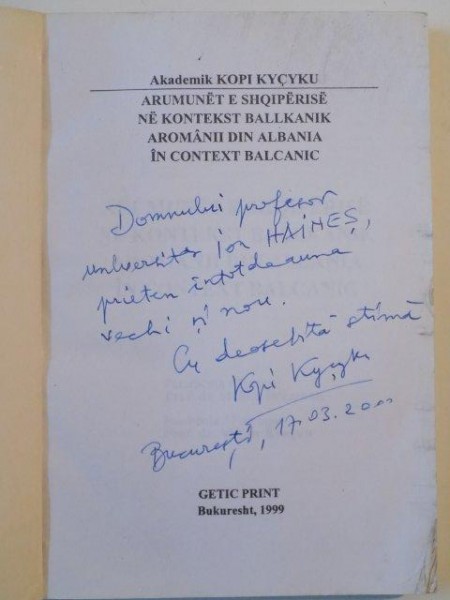 Akademik KOPI KYÇYKU
ARUMUNËT E SHQIPËRISË
NË KONTEKST BALLKANIK
AROMÂNII DIN ALBANIA
ÎN CONTEXT BALCANIC
Domnului profesor
universitar ion HAINEȘ,
prieten întotdeauna
vechi și nou.
Cu deosebită stimă
Kopi Kyçyku
București, 17.03.2000
GETIC PRINT
Bukuresht, 1999